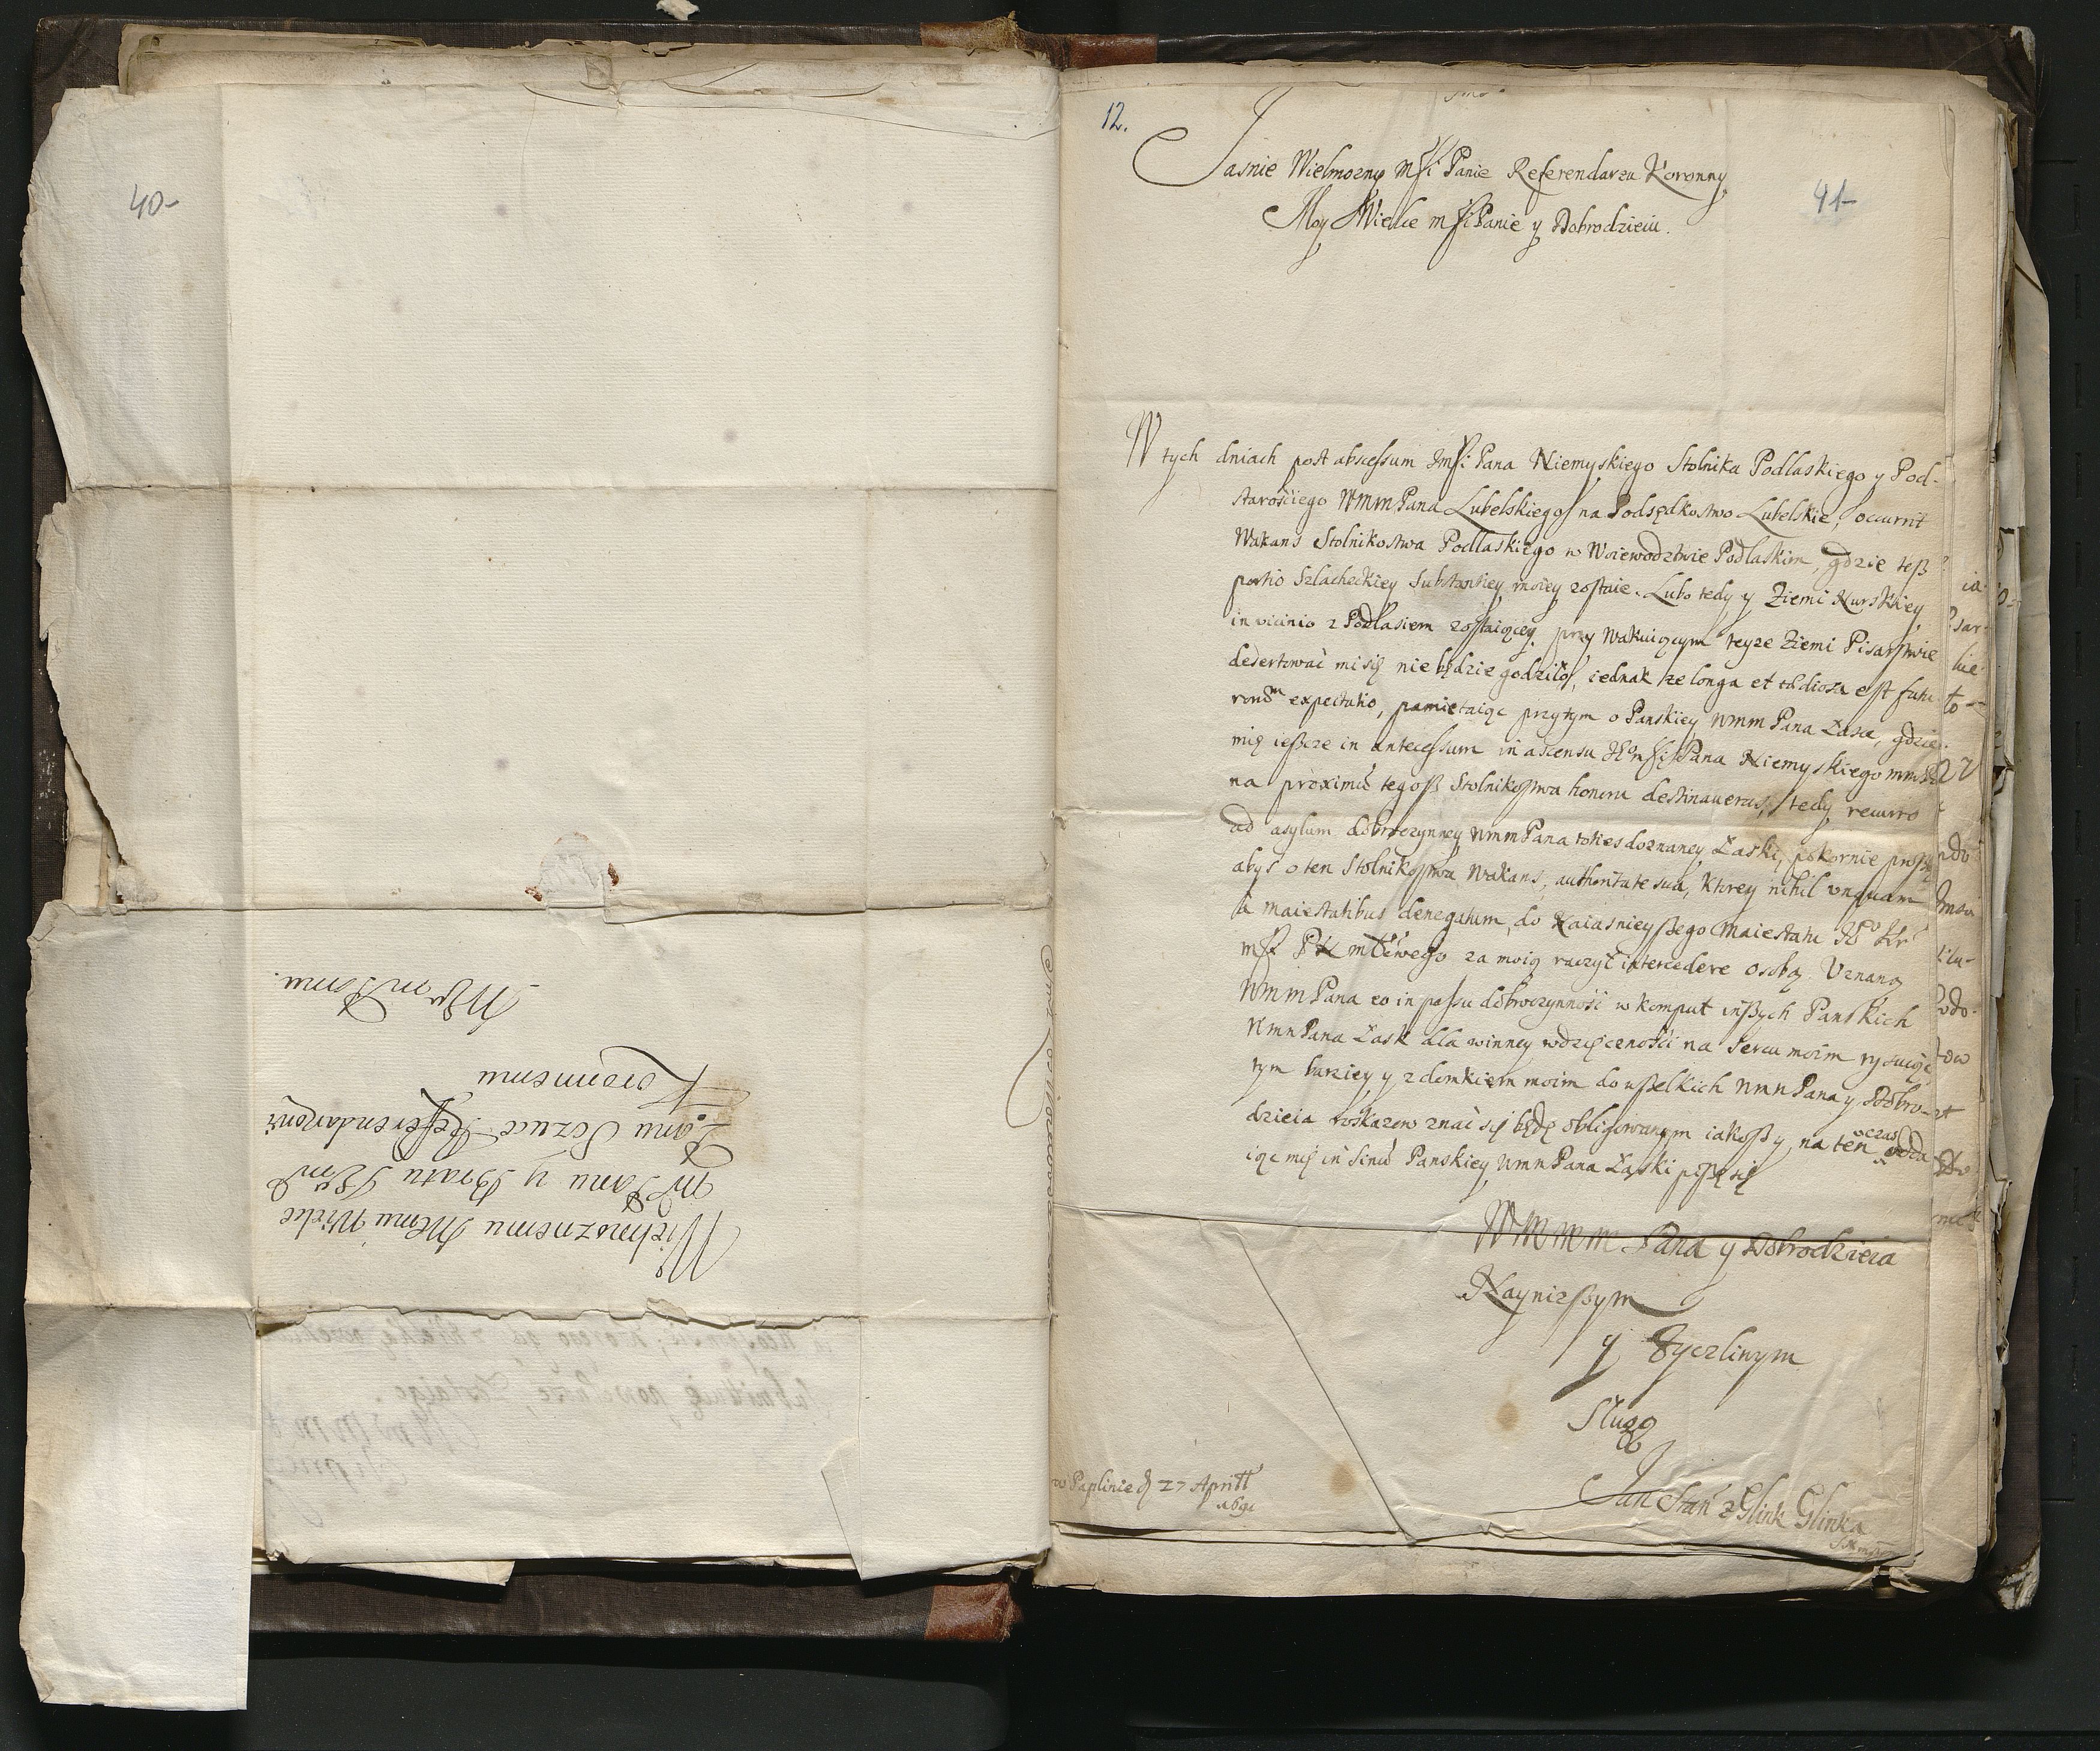 40-
Wielmoznemu Memu Wielce
Mt Panu y Bratu
Panu Szczuce Refferendarzowi
Koronnemu
12.
41-
Jasnie Wielmozny Mści Panie Referendarzu Koronny
Moy Wielce mści Panie y Dobrodzieiu.
W tych dniach post abscessum Jmści Pana Niemyskiego Stolnika Podlaskiego y Pod-
starosciego WmmPana Lubelskiego na Podsędkostwo Lubelskie, occurrit
Wakans Stolnikostwa Podlaskiego w Woiewodztwie Podlaskim, gdzie tesz
portio Szlacheckiey Substantiey moiey zostaie. Lubo tedy y Ziemi Nurskiey
in vicinio z Podlasiem zostaiącey przy wakuiącym teyze Ziemi Pisarstwie
desertowac mi się nie będzie godziło, iednak ze longa et tædiosa est futu
rorum expectatio, pamietaiąc przytym o Panskiey wmm Pana Łasce, gdzie
mię ieszcze in antecessum in ascensu Pana Niemyskiego
na proximu tegosz Stolnikostwa honoru destinaueras, tedy recurro
ad asylum dobroczynney wmmPana toties doznaney Łaski, pokornie proszę
abys o ten Stolnikostwa wakans, authoritate sua, ktorey nihil vnquam
a maiestatibus denegatum, do Naiasnieyszego Maiestatu
za moią raczył intercedere osobą. Vznaną
WmmPana eo in passu dobroczynnosc w komput inszych Panskich
WmmPana Łask dla winney wdzięcznosci na sercu moim rysuiąc
tym barziey y z domkiem moim do wszelkich wmmPana y Dobro-
dzieia roskazow znac się będę obligowanym iakosz y na ten czas odda
iąc mię in sinu Panskiey wmmPana Łaski piszę się
WMMM Pana y Dobrodzieia
Nayniższym
y Zyczliwym
Sługą
Jan Stan z Glink Glinka
w Paplinie d 27 Aprill